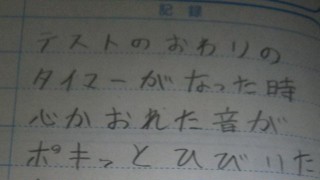 記録
テストのおわりの
タイマーがなった時
心がおれた音が
ポキっとひびいた